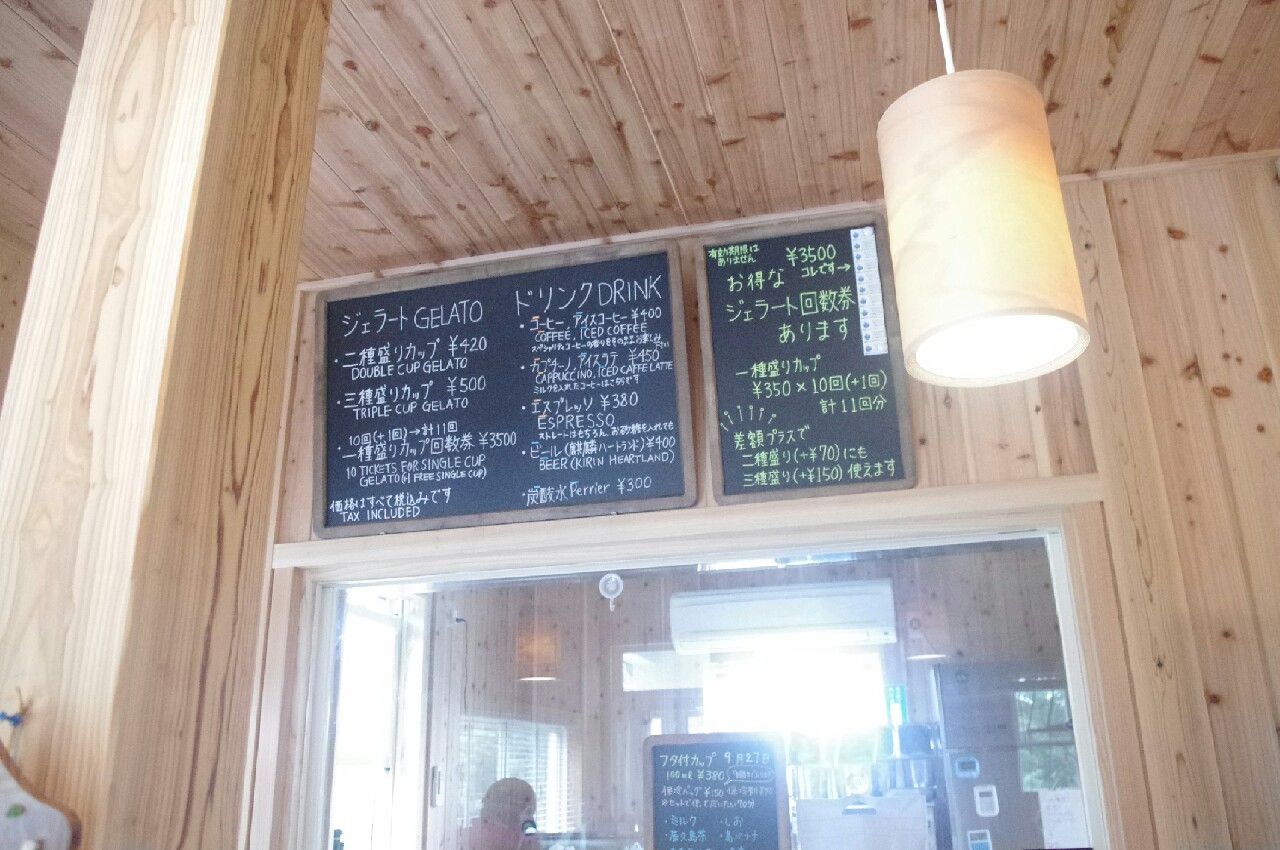 ジェラート GELATO
・二種盛りカップ ¥420
DOUBLE CUP GELATO
・三種盛りカップ ¥500
TRIPLE CUP GELATO
・10回(+1回)→計11回
一種盛りカップ回数券 ¥3500
10 TICKETS FOR SINGLE CUP
GELATO(+1 FREE SINGLE CUP)
価格はすべて税込みです
TAX INCLUDED
ドリンク DRINK
・コーヒー、アイスコーヒー ¥400
COFFEE, ICED COFFEE
・カプチーノ、アイスラテ ¥450
CAPPUCCINO, ICED CAFFE LATTE
ミルクを入れたコーヒーはこちらです
・エスプレッソ ¥380
ESPRESSO
ストレートはもちろん、お砂糖を入れても
・ビール(麒麟ハートランド)¥400
BEER (KIRIN HEARTLAND)
・炭酸水 Perrier ¥300
有効期限は
ありません
¥3500
コレです→
お得な
ジェラート回数券
あります
一種盛りカップ
¥350×10回(+1回)
計11回分
差額プラスで
二種盛り(+¥70)にも
三種盛り(+¥150)使えます
フタ付カップ 9月27日
100ml ¥380
保冷バッグ ¥150
・ミルク ・しお
・屋久島茶